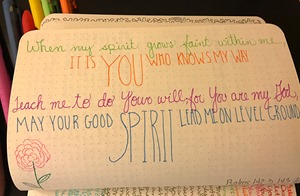 When my spirit grows faint within me,
IT IS YOU WHO KNOWS MY WAY
teach me to do Your will, for You are my God,
MAY YOUR GOOD SPIRIT LEAD ME ON LEVEL GROUND